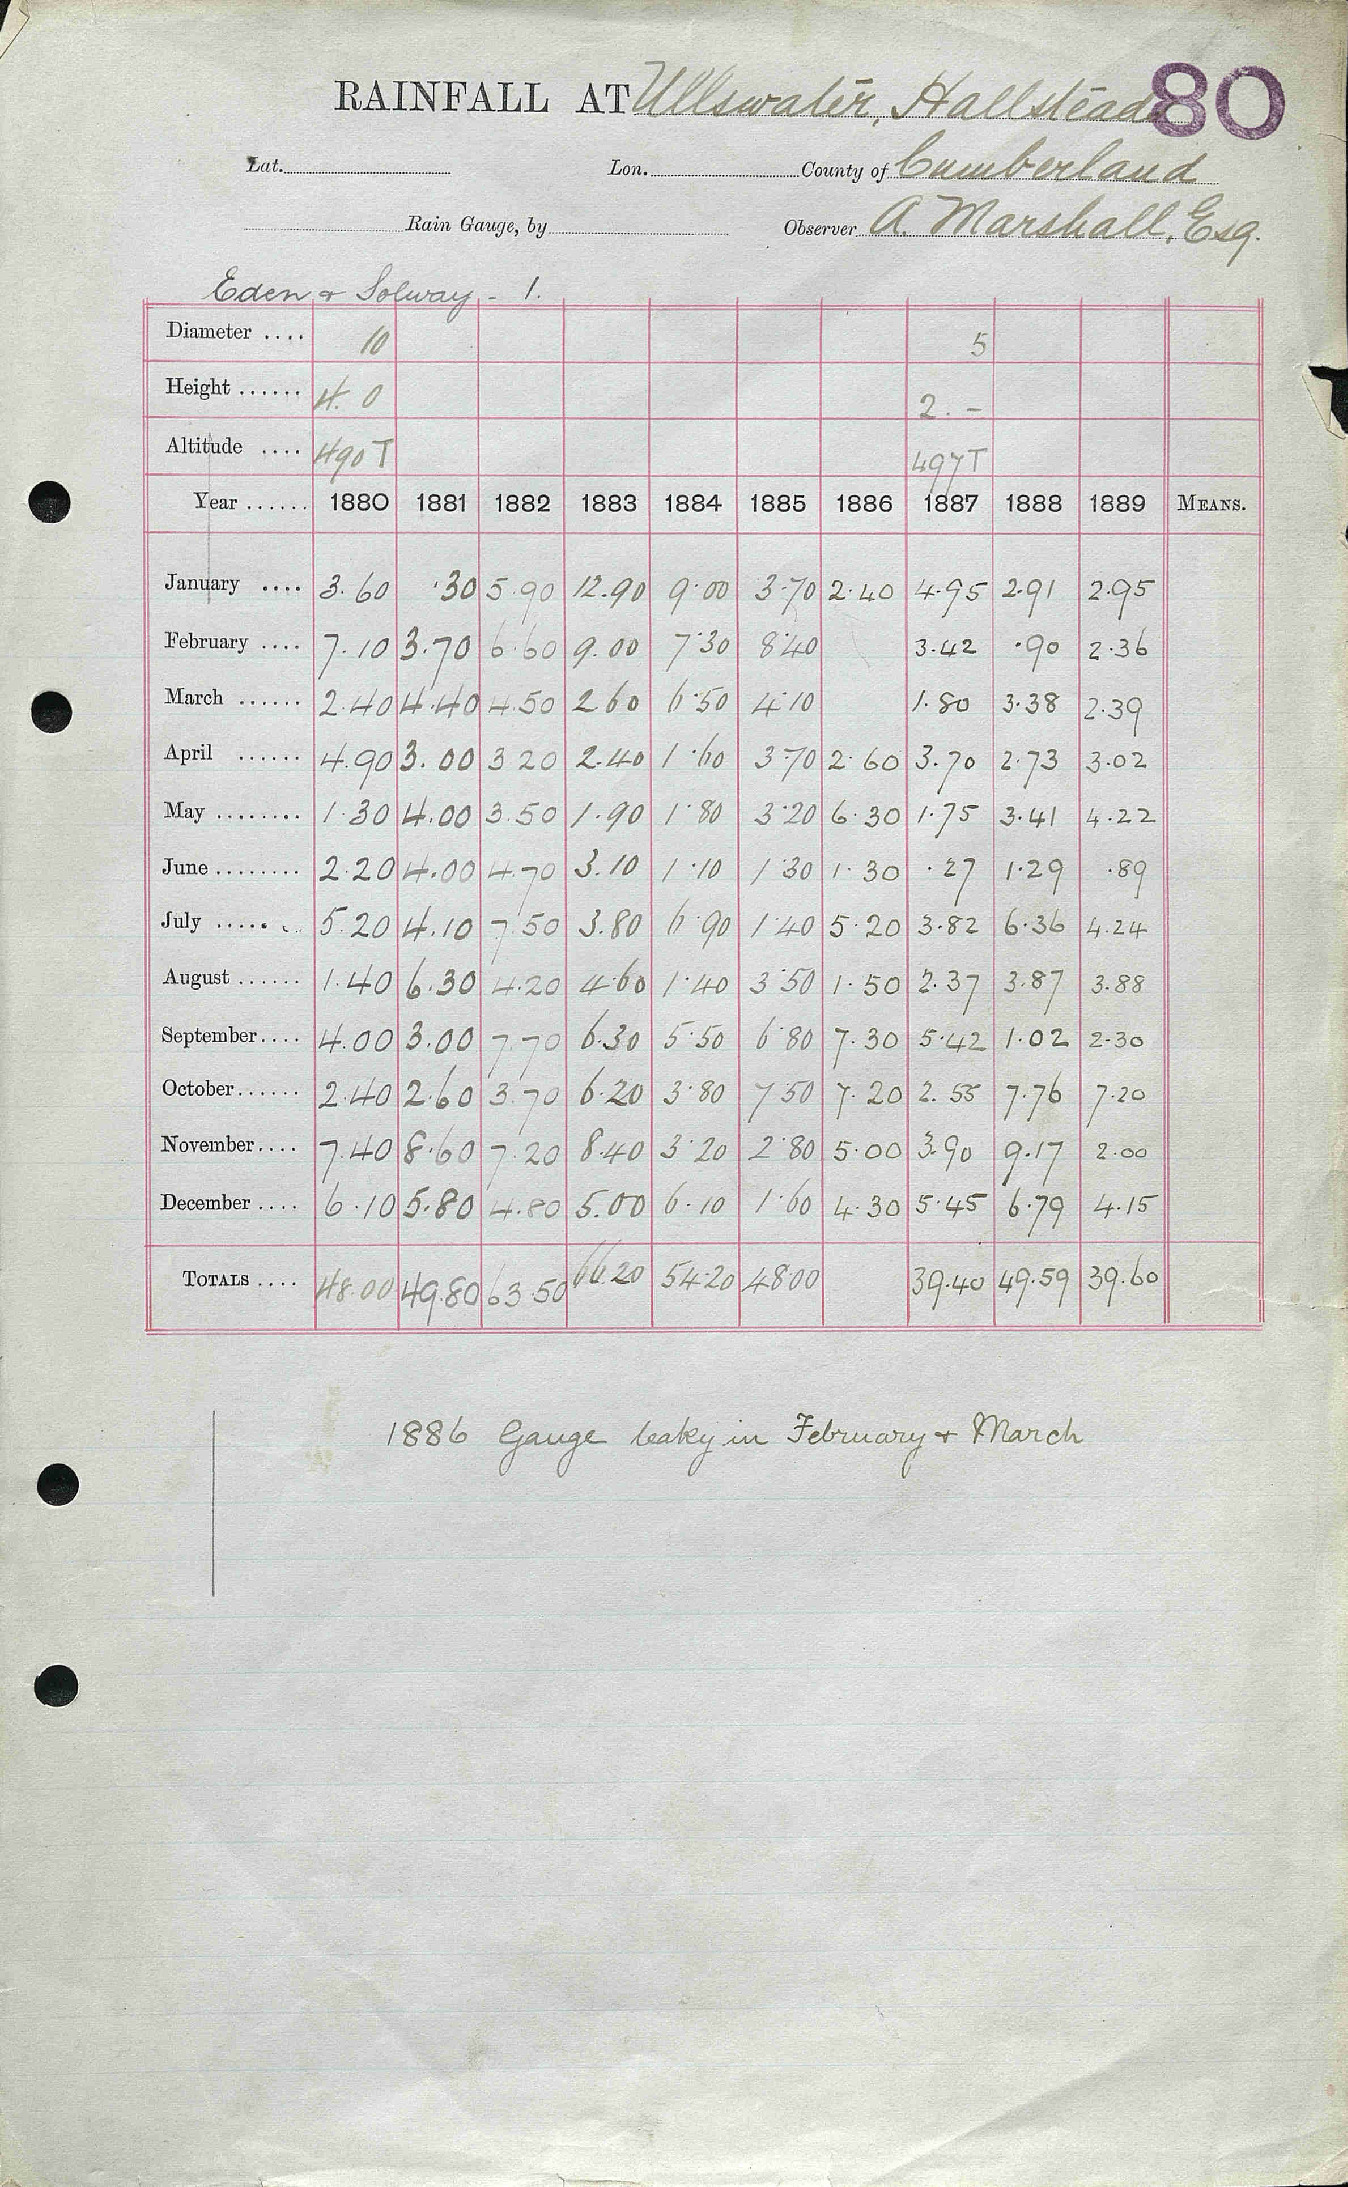 80
RAINFALL AT Ullswater, Hallsteads
Lat. Lon. County of Cumberland
Rain Gauge, by Observer A. Marshall, Esq.
Eden & Solway - 1.
Diameter .... 10 5
Height ...... 4. 0 2. -
Altitude .... 490 T 497 T
Year ...... 1880 1881 1882 1883 1884 1885 1886 1887 1888 1889 MEANS.
January .... 3.60 .30 5.90 12.90 9.00 3.70 2.40 4.95 2.91 2.95
February .... 7.10 3.70 6.60 9.00 7.30 8.40 3.42 .90 2.36
March ...... 2.40 4.40 4.50 2.60 6.50 4.10 1.80 3.38 2.39
April ...... 4.90 3.00 3.20 2.40 1.60 3.70 2.60 3.70 2.73 3.02
May ........ 1.30 4.00 3.50 1.90 1.80 3.20 6.30 1.75 3.41 4.22
June ........ 2.20 4.00 4.70 3.10 1.10 1.30 1.30 .27 1.29 .89
July ...... 5.20 4.10 7.50 3.80 6.90 1.40 5.20 3.82 6.36 4.24
August ...... 1.40 6.30 4.20 4.60 1.40 3.50 1.50 2.37 3.87 3.88
September.... 4.00 3.00 7.70 6.30 5.50 6.80 7.30 5.42 1.02 2.30
October...... 2.40 2.60 3.70 6.20 3.80 7.50 7.20 2.55 7.76 7.20
November.... 7.40 8.60 7.20 8.40 3.20 2.80 5.00 3.90 9.17 2.00
December .... 6.10 5.80 4.80 5.00 6.10 1.60 4.30 5.45 6.79 4.15
TOTALS .... 48.00 49.80 63.50 66.20 54.20 48.00 39.40 49.59 39.60
1886 Gauge leaky in February & March